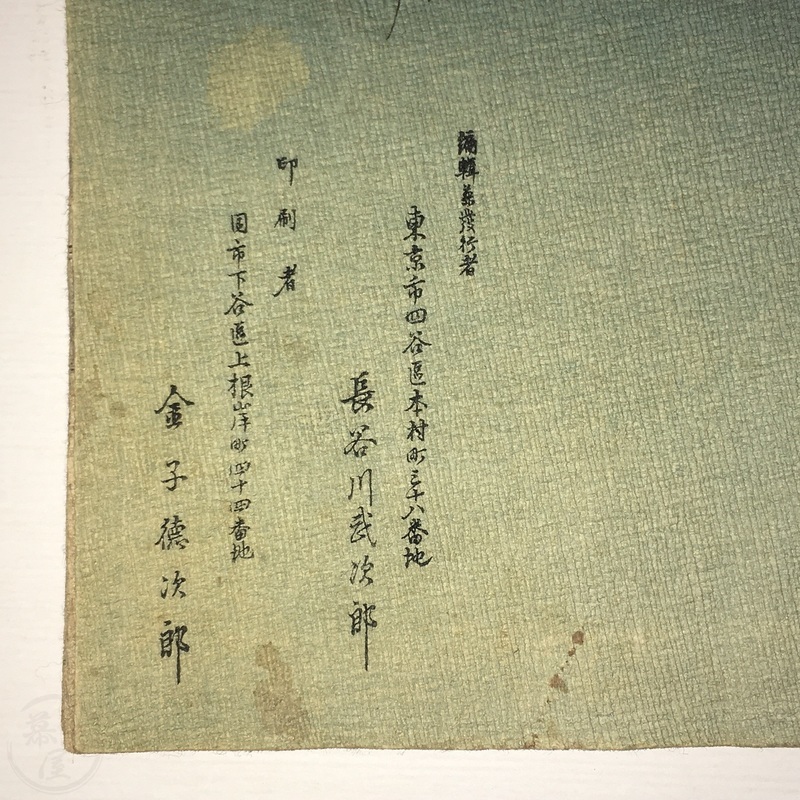 編輯兼發行者
東京市四谷區本村町三十八番地
長谷川武次郎
印刷者
同市下谷區上根岸町四十四番地
金子德次郎